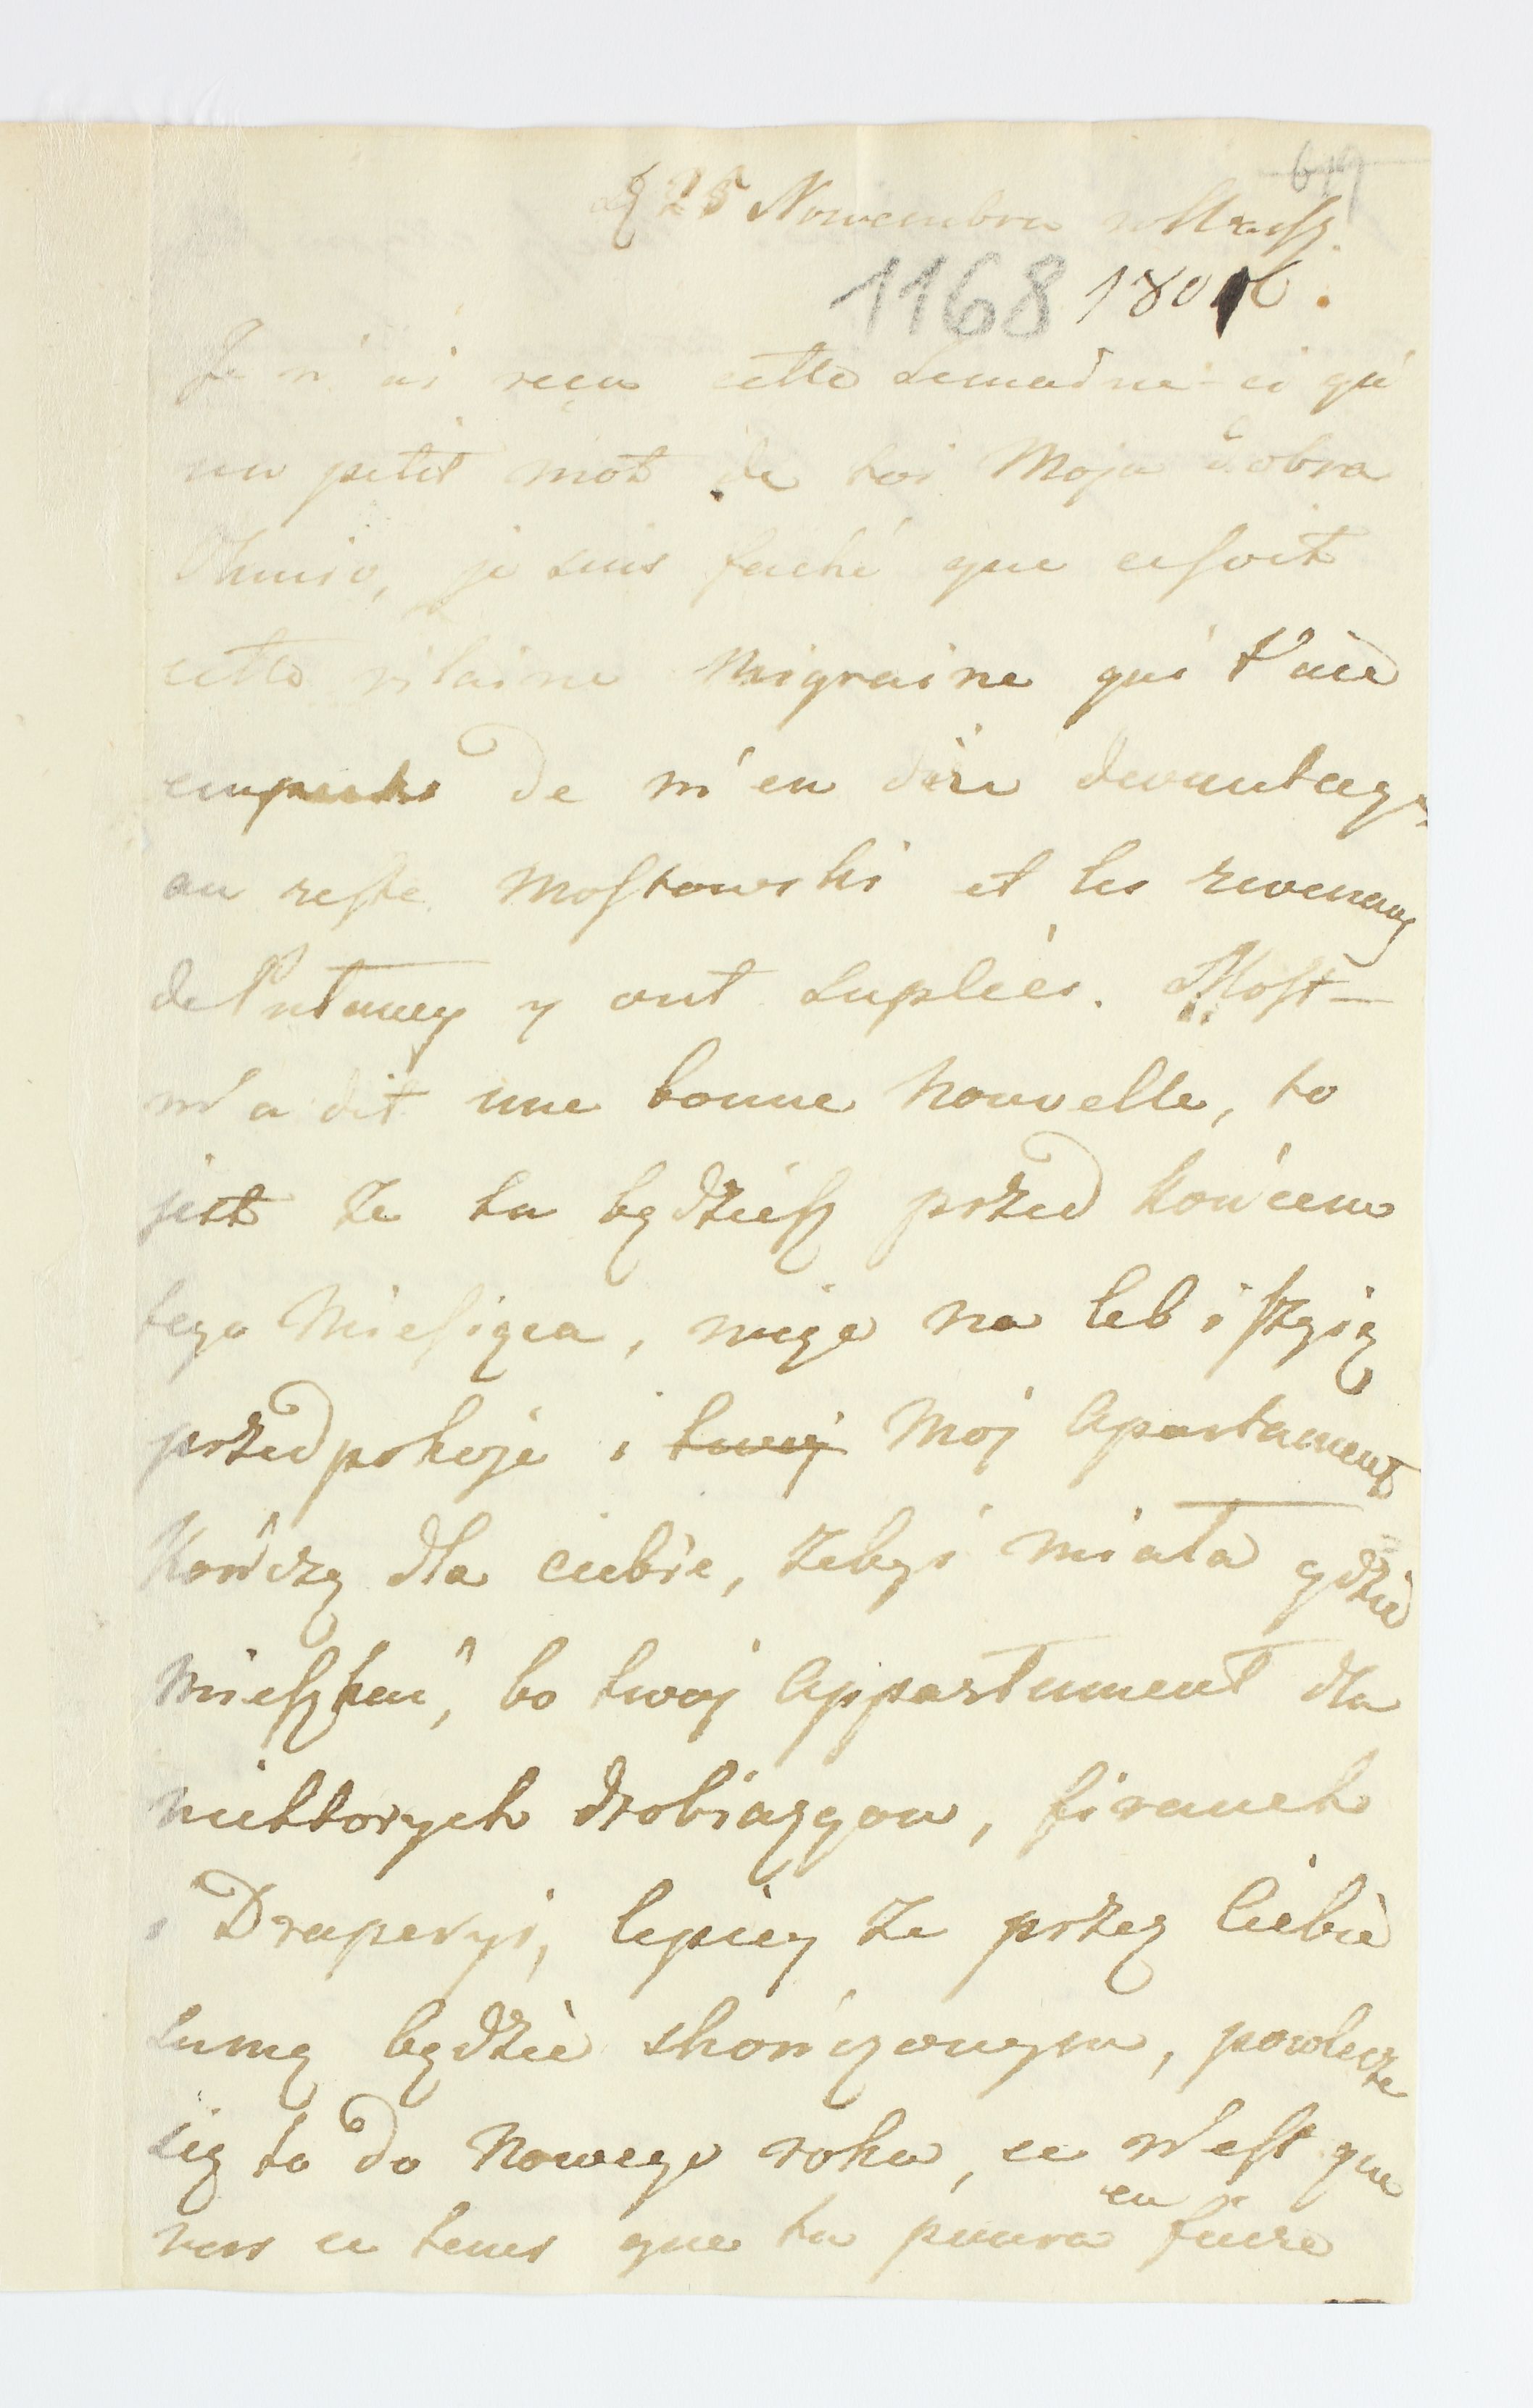 D 25 Nowembra w Warsz.
1168 1806.
Je n'ai reçu cette Semaine-ci qu'
un petit mot de toi Moja dobra
je suis faché que ce soit
cette vilaine Migraine qui t'aie
empeche de m'en dire davantage,
au reste Mostowski et les revenans
de Pulawy y ont supléés. Most—
m'a dit une bonne Nouvelle, to
jest ze tu będziesz przed końcem
tego Miesiąca, więc na łeb i szyię
przedpokoje i twoj Moj Apartament
Kończę dla ciebie, żebyś miała gdzie
Mieszkać, bo twoj Appartament dla
niektorych drobiazgow, firanek
i Draperyi, lepiey że przez Ciebie
samę będzie skończonym, powlecze
się to do Nowego roku, ce n'est que
en
vers ce tems que tu poura faire